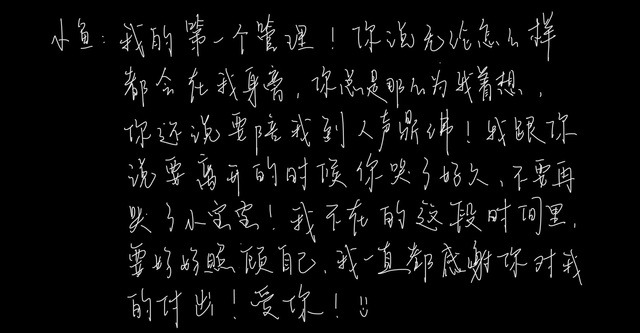 小鱼：我的第一个管理！你说无论怎么样
都会在我身旁，你总是那么为我着想，
你还说要陪我到人声鼎沸！我跟你
说要离开的时候你哭了好久、不要再
哭了小宝宝！我不在的这段时间里，
要好好照顾自己，我一直都感谢你对我
的付出！爱你！